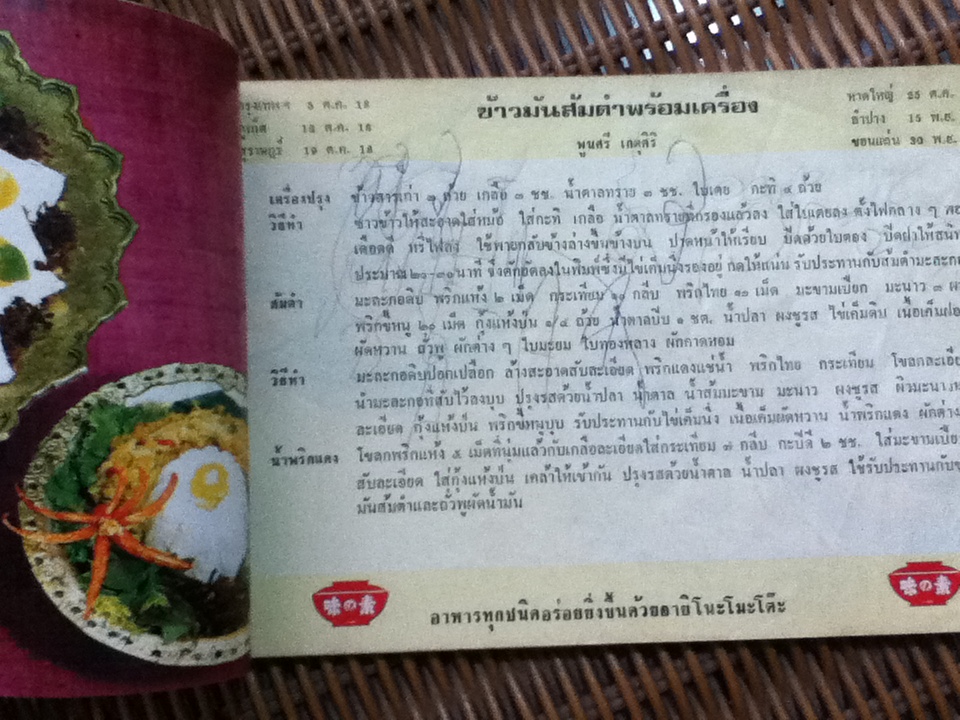 กรุงเทพฯ 5 ต.ค. 18
ภูเก็ต 12 ต.ค. 18
สุราษฎร์ 19 ต.ค. 18
ข้าวมันส้มตำพร้อมเครื่อง
พูนศรี เกตุศิริ
หาดใหญ่ 25 ต.ค.
ลำปาง 15 พ.ย.
ขอนแก่น 30 พ.ย.
เครื่องปรุง ข้าวสารเก่า ๓ ถ้วย เกลือ ๓ ชช. น้ำตาลทราย ๓ ชช. ใบเตย กะทิ ๔ ถ้วย
วิธีทำ ซาวข้าวให้สะอาดใส่หม้อ ใส่กะทิ เกลือ น้ำตาลทรายที่กรองแล้วลง ใส่ใบเตยลง ตั้งไฟกลาง ๆ
เดือดดี หรี่ไฟลง ใช้พายกลับข้างล่างขึ้นข้างบน ปาดหน้าให้เรียบ ปิดด้วยใบตอง ปิดฝาให้สนิท
ประมาณ ๒๐-๓๐ นาที จึงตักอัดลงในพิมพ์ซึ่งมีไข่เค็มนึ่งรองอยู่ กดให้แน่น รับประทานกับส้มตำมะละกอ
ส้มตำ มะละกอดิบ พริกแห้ง ๒ เม็ด กระเทียม ๑๐ กลีบ พริกไทย ๑๐ เม็ด มะขามเปียก มะนาว ๓
พริกขี้หนู ๒๐ เม็ด กุ้งแห้งป่น ๑/๔ ถ้วย น้ำตาลปีบ ๑ ชต. น้ำปลา ผงชูรส ไข่เค็มดิบ เนื้อเค็มฝอย
ผัดหวาน ถั่วพู ผักต่าง ๆ ใบมะยม ใบทองหลาง ผักกาดหอม
วิธีทำ มะละกอดิบปอกเปลือก ล้างสะอาดสับละเอียด พริกแดงแช่น้ำ พริกไทย กระเทียม โขลกละเอียด
นำมะละกอที่สับไว้ลงบุบ ปรุงรสด้วยน้ำปลา น้ำตาล น้ำส้มมะขาม มะนาว ผงชูรส ผิวมะนาว
ละเอียด กุ้งแห้งป่น พริกขี้หนูบุบ รับประทานกับไข่เค็มนึ่ง เนื้อเค็มผัดหวาน น้ำพริกแดง ผักต่าง
น้ำพริกแดง โขลกพริกแห้ง ๕ เม็ดที่นุ่มแล้วกับเกลือละเอียดใส่กระเทียม ๗ กลีบ กะปิดี ๒ ชช. ใส่มะขามเปียก
สับละเอียด ใส่กุ้งแห้งป่น เคล้าให้เข้ากัน ปรุงรสด้วยน้ำตาล น้ำปลา ผงชูรส ใช้รับประทานกับ
มันส้มตำและถั่วพูผัดน้ำมัน
味の素
อาหารทุกชนิดอร่อยยิ่งขึ้นด้วยอายิโนะโมะโต๊ะ
味の素